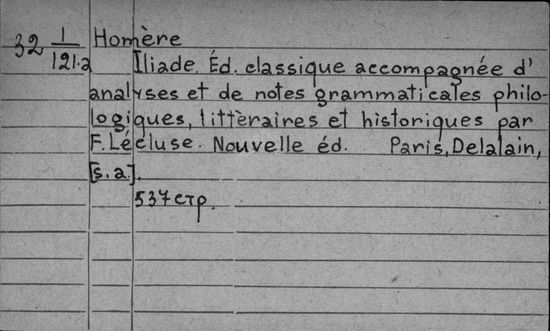 32 1/121.a Homère
Iliade. Éd. classique accompagnée d'
analyses et de notes grammaticales philo-
logiques, littèraires et historiques par
F. Lécluse. Nouvelle éd. Paris, Delalain,
[s.a.].
537 стр.